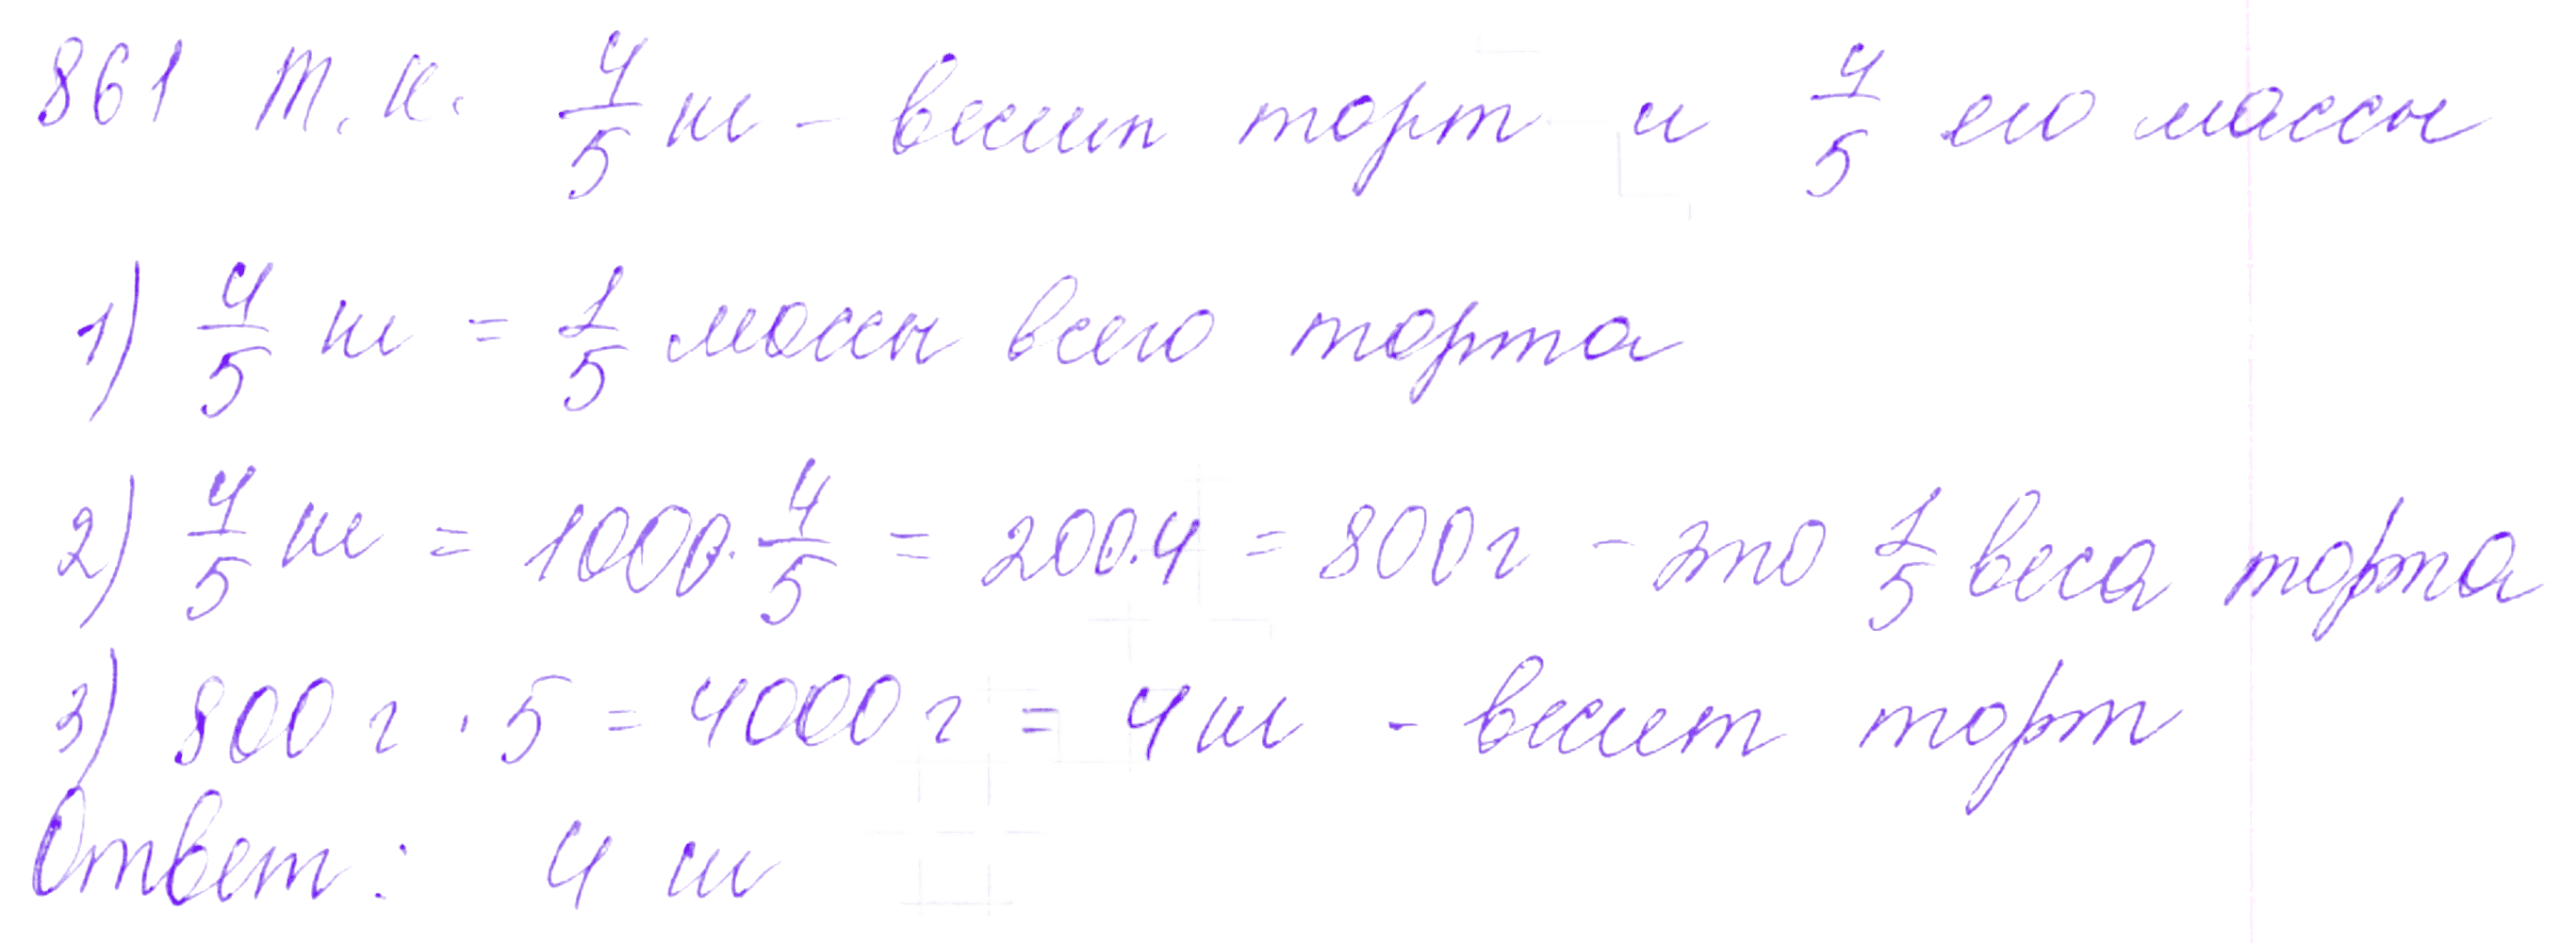 861 Т.к. 4/5 кг - весит торт и 4/5 его массы
1) 4/5 кг = 1/5 массы всего торта
2) 4/5 кг = 1000 · 4/5 = 200 · 4 = 800 г - это 1/5 веса торта
3) 800 г · 5 = 4000 г = 4 кг - весит торт
Ответ: 4 кг